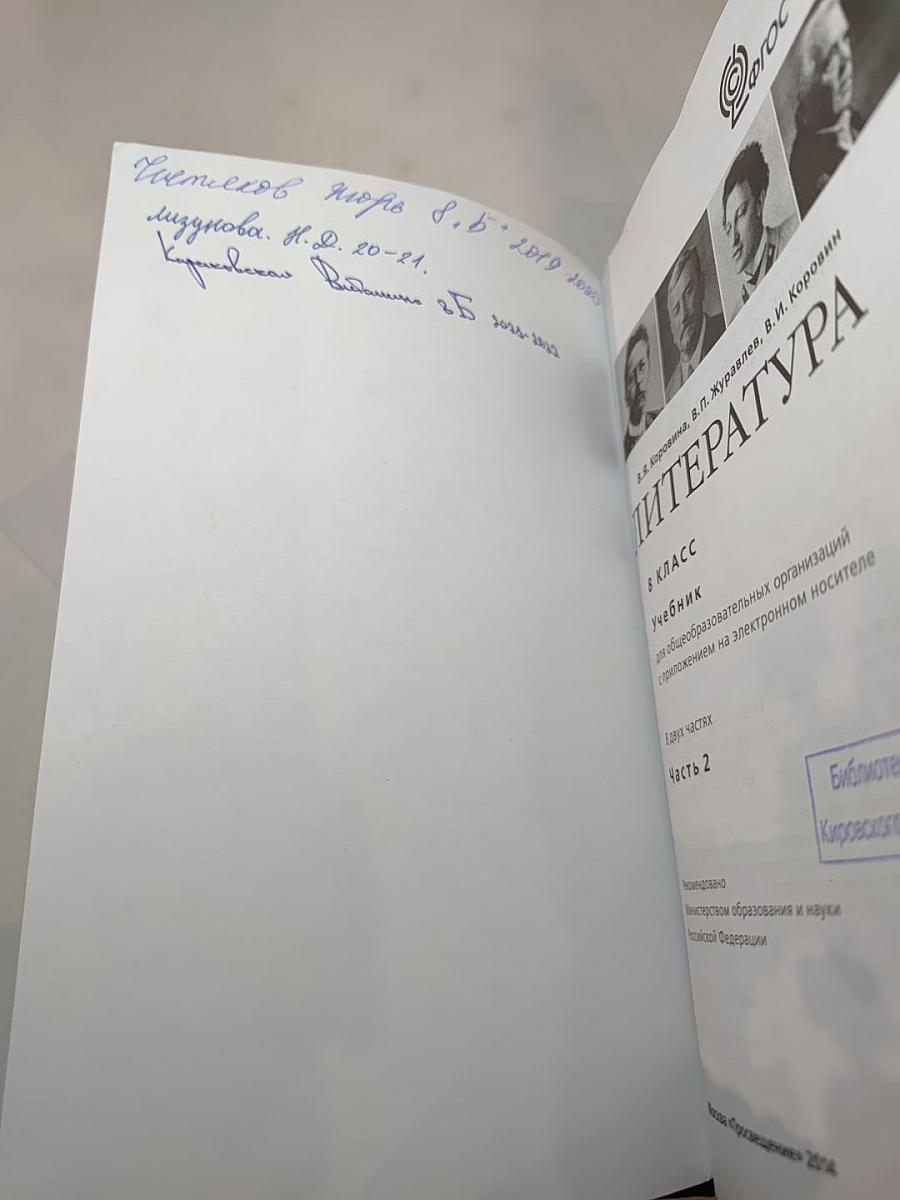 Чистяков Игорь 8 "Б" 2019-2020
Лизунова. Н.Д. 20-21.
Виталина 8Б 2021-2022
ФГОС
В.Я. Коровина, В.П. Журавлев, В.И. Коровин
ЛИТЕРАТУРА
8 КЛАСС
Учебник
для общеобразовательных организаций
с приложением на электронном носителе
В двух частях
Часть 2
Библиоте
Кировского
Рекомендовано
Министерством образования и науки
Российской Федерации
Москва «Просвещение» 2014